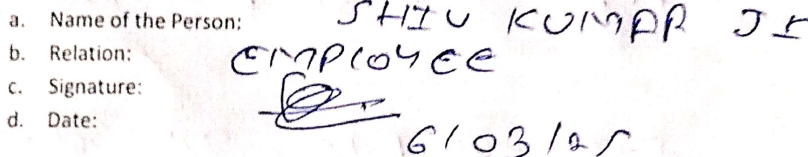 a. Name of the Person: SHIV KUMAR JI
b. Relation: EMPLOYEE
c. Signature:
d. Date: 6/03/25